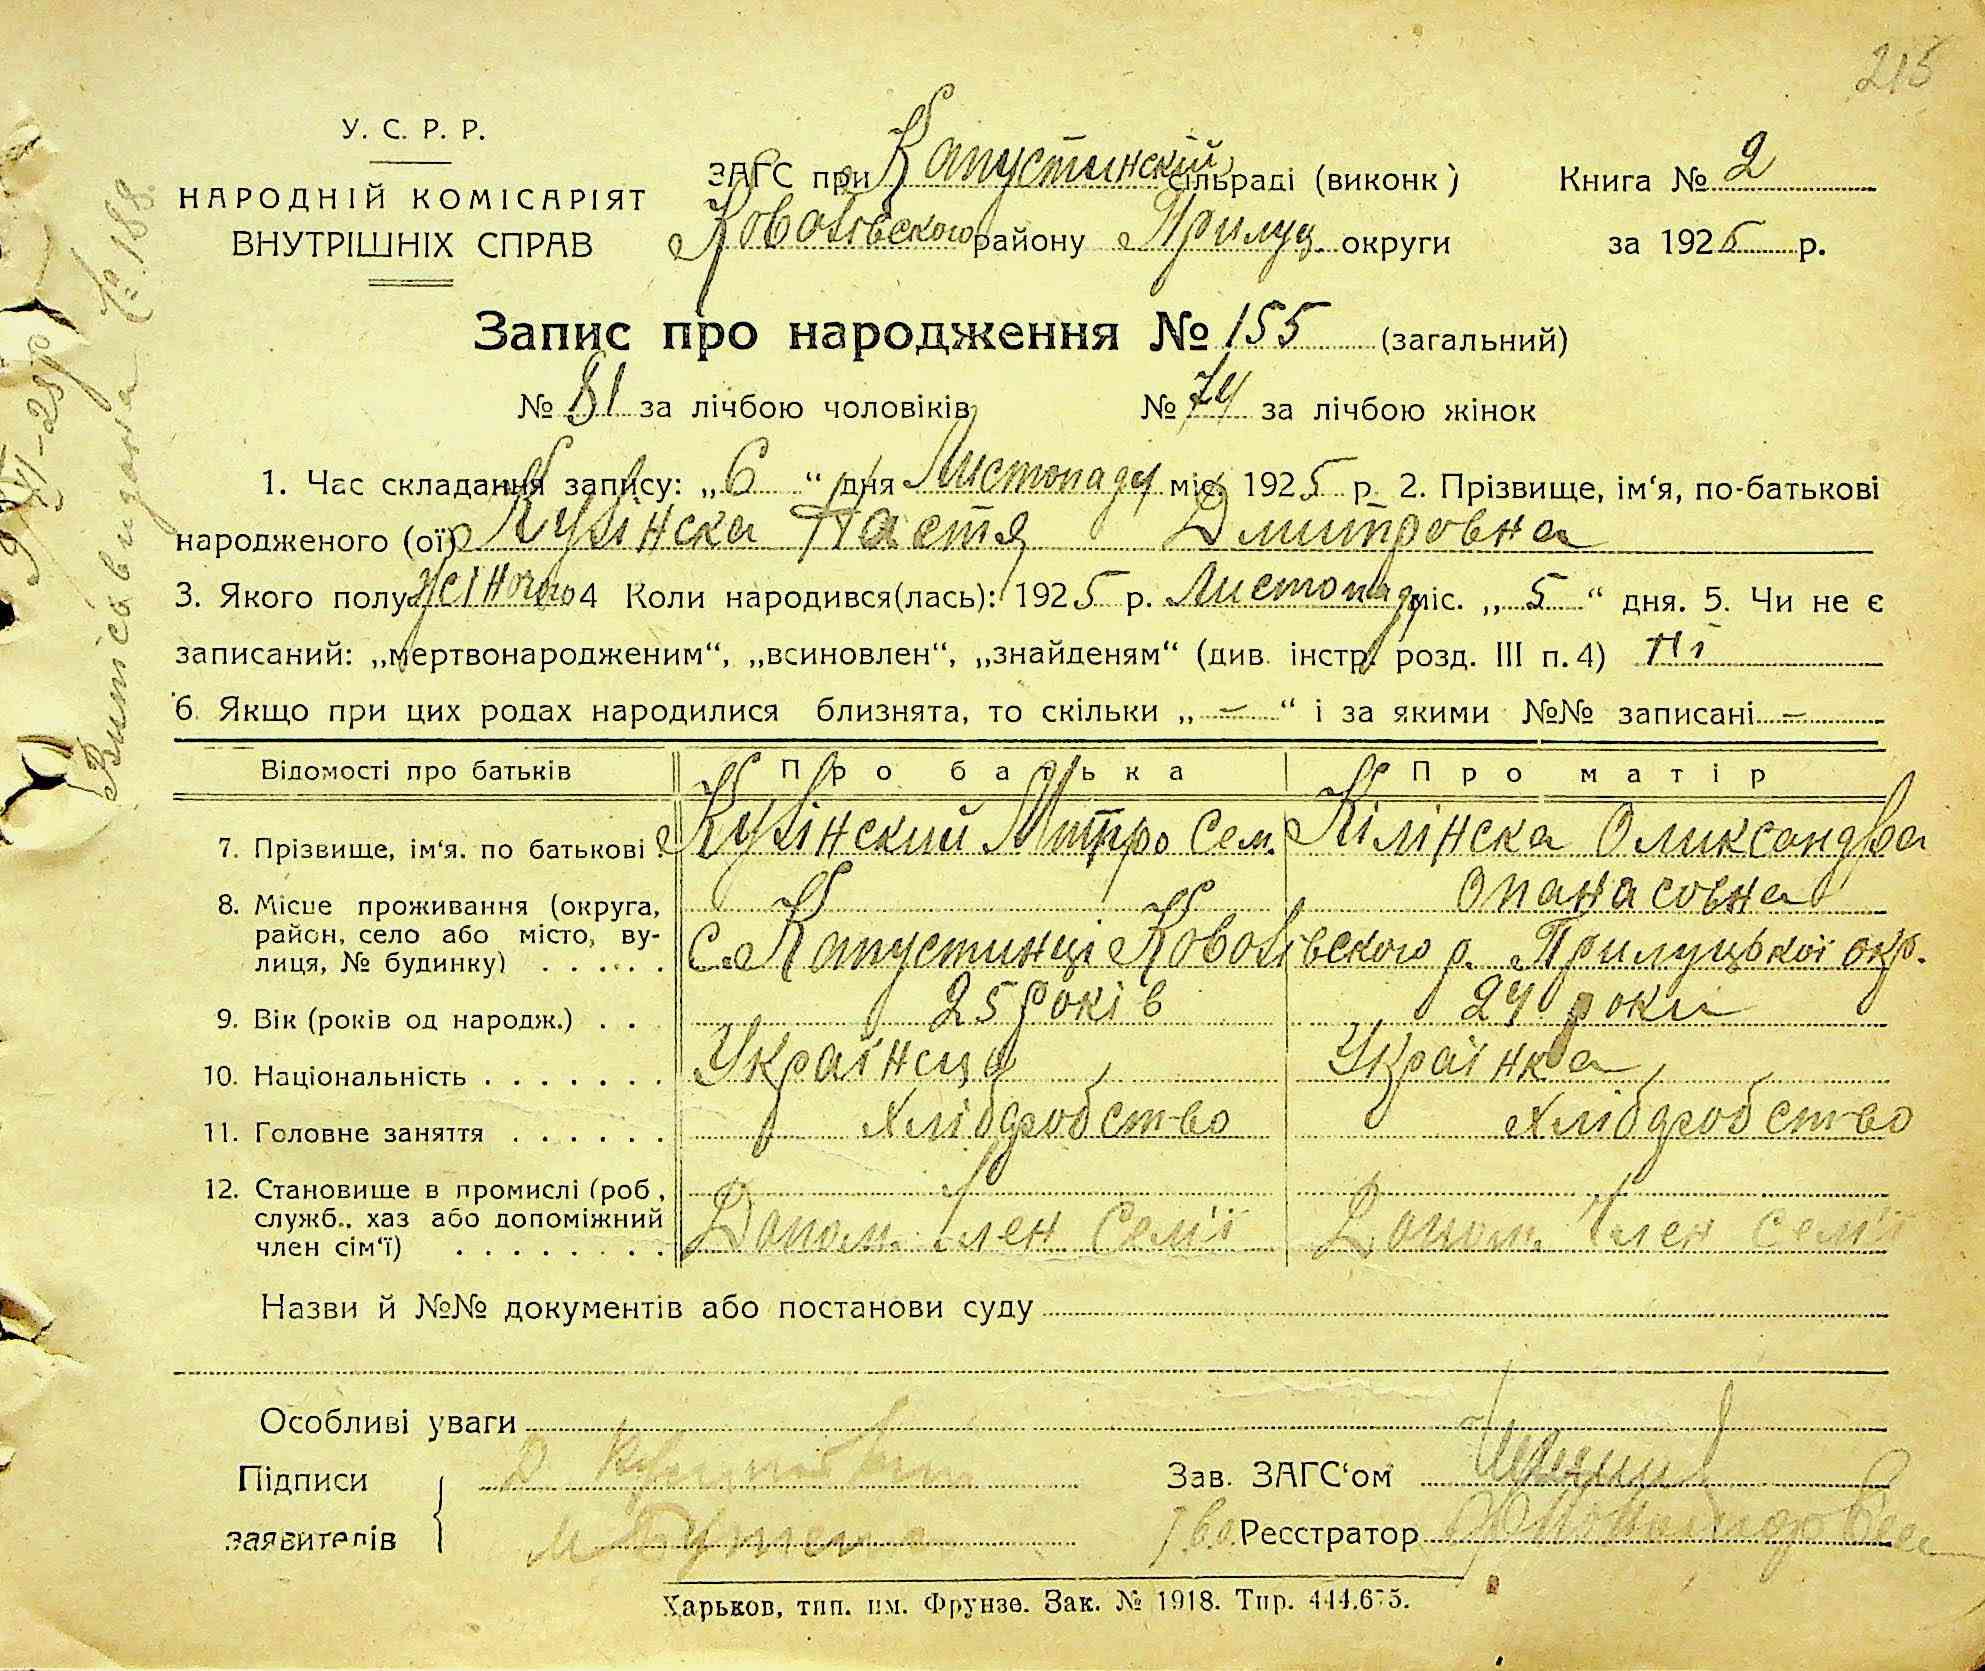 215
У. С. Р. Р.
НАРОДНІЙ КОМІСАРІЯТ
ВНУТРІШНІХ СПРАВ
ЗАГС при Капустинский сільраді (виконк)
Ковалівського району Прилуц. округи
Книга № 2
за 1925 р.
Запис про народження № 155 (загальний)
№ 81 за лічбою чоловіків № 74 за лічбою жінок
1. Час складання запису: „ 6 “ дня Листопаду міс. 1925 р. 2. Прізвище, ім‘я, по-батькові
народженого (ої) Кулінска Настя Дмитровна
3. Якого полу жіночого 4 Коли народився(лась): 1925 р. Листопаду міс. „ 5 “ дня. 5. Чи не є
записаний: „мертвонародженим“, „всиновлен“, „знайденям“ (див. інстр. розд. III п. 4) Ні
6. Якщо при цих родах народилися близнята, то скільки „ — “ і за якими №№ записані —
Відомості про батьків Про батька Про матір
7. Прізвище, ім‘я. по батькові . Кулінский Митро Сем. Кілінска Оликсандра
Опанасовна
8. Місце проживання (округа,
район, село або місто, ву-
лиця, № будинку) . . . . . . С. Капустинці Ковалівского р. Прилуцької окр.
9. Вік (років од народж.) . . 25 років 24 роки
10. Національність . . . . . . . Українец Українка
11. Головне заняття . . . . . . Хлібдробство Хлібдробство
12. Становище в промислі (роб.,
служб., хаз або допоміжний
член сім‘ї) . . . . . . . . Допом. Член Семʼї Допом. Член Семʼї
Назви й №№ документів або постанови суду
Особливі уваги
Підписи
заявителів
Зав. ЗАГС‘ом
Реєстратор
Харьков, тип. им. Фрунзе. Зак. № 1918. Тир. 444.675.
Витіс видана № 188.